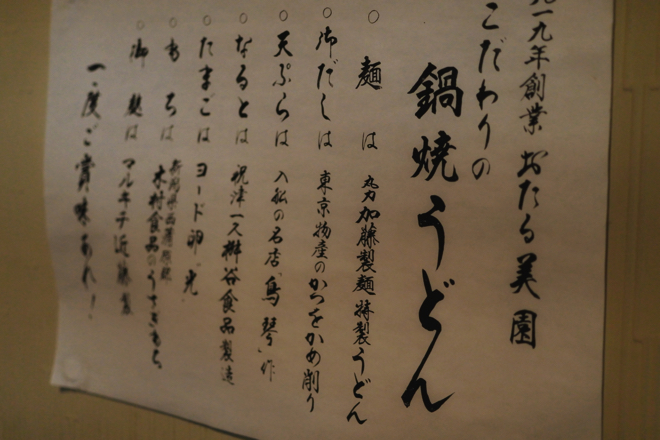 九一九年創業 おたる美園
こだわりの
鍋焼うどん
○麺は 丸力加藤製麺特製うどん
○御だしは 東京物産のかつをかめ削り
○天ぷらは 入船の名店「鳥琴」作
○なるとは 祝津一久桝谷食品製造
○たまごは ヨード卵「光」
○もちは 新潟県西蒲原郡
木村食品のうさぎもち
○御麩は マルキチ近藤製
一度ご賞味あれ!